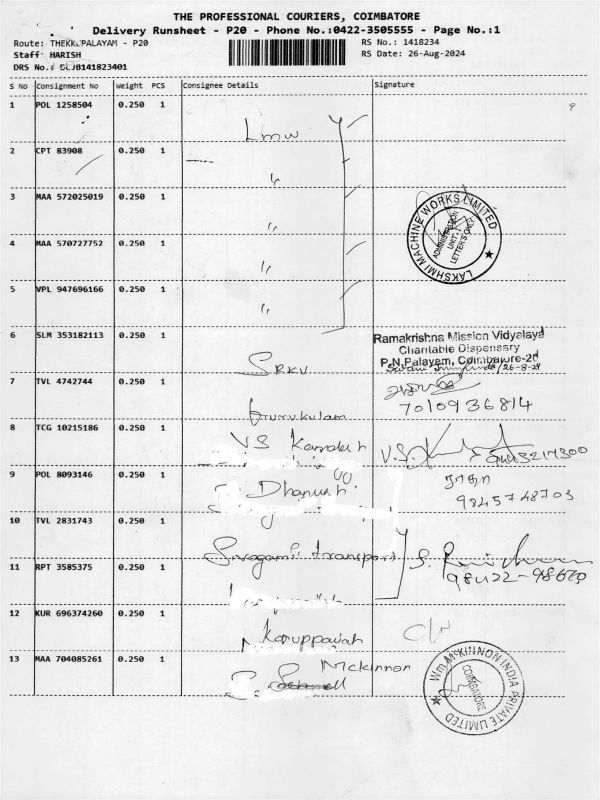 THE PROFESSIONAL COURIERS, COIMBATORE
Delivery Runsheet - P20 - Phone No.:0422-3505555 - Page No.:1
Route: THEKKUPALAYAM - P20
RS No.: 1418234
Staff: HARISH
RS Date: 26-Aug-2024
DRS No.: 141823401
S No Consignment No Weight PCS Consignee Details Signature
1 POL 1258504 0.250 1 Lmw
2 CPT 83908 0.250 1 "
3 MAA 572025019 0.250 1 "
4 MAA 570727752 0.250 1 "
5 VPL 947696166 0.250 1 "
LAKSHMI MACHINE WORKS LIMITED
ADMINISTRATION
UNIT
LETTER'S ONLY
6 SLM 353182113 0.250 1 SRKV
Ramakrishna Mission Vidyalaya
Charitable Dispensary
P.N.Palayam, Coimbatore-20
26-8-24
7 TVL 4742744 0.250 1 Gurukulam
7010936814
8 TCG 10215186 0.250 1 VS
V.S.
9 POL 8093146 0.250 1 Dhanush
ராதா
9845748703
10 TVL 2831743 0.250 1
11 RPT 3585375 0.250 1 Sivagami transport
98422-98670
12 KUR 696374260 0.250 1 Karuppaiah
13 MAA 704085261 0.250 1 Mckinnon
Wm. McKINNON INDIA PRIVATE LIMITED
COIMBATORE